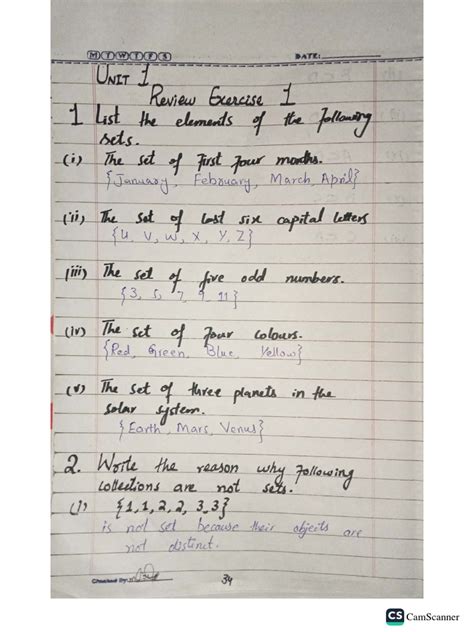 M T W T F S DATE:
UNIT 1
Review Exercise 1
1 List the elements of the following
sets.
(i) The set of first four months.
{January, February, March, April}
(ii) The set of last six capital letters
{U, V, W, X, Y, Z}
(iii) The set of five odd numbers.
{3, 5, 7, 9, 11}
(iv) The set of four colours.
{Red, Green, Blue, Yellow}
(v) The set of three planets in the
solar system.
{Earth, Mars, Venus}
2. Write the reason why following
collections are not sets.
(i) {1,1,2,2,3,3}
is not set because their objects are
not distinct.
Checked By:
34
CS CamScanner